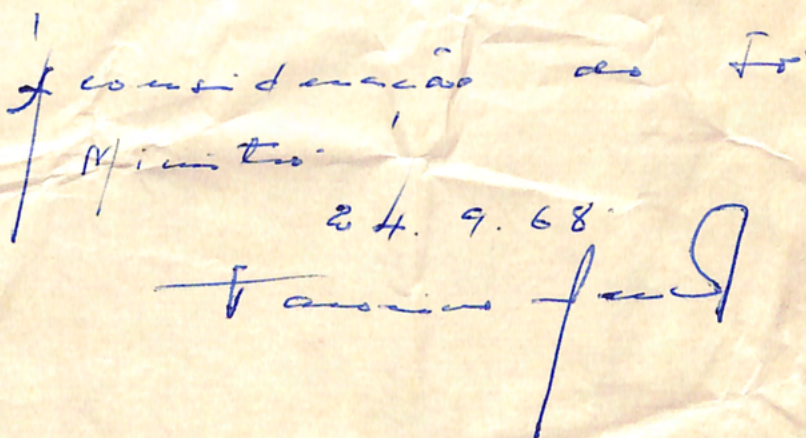 À consideração do Sr
Ministro
24.9.68